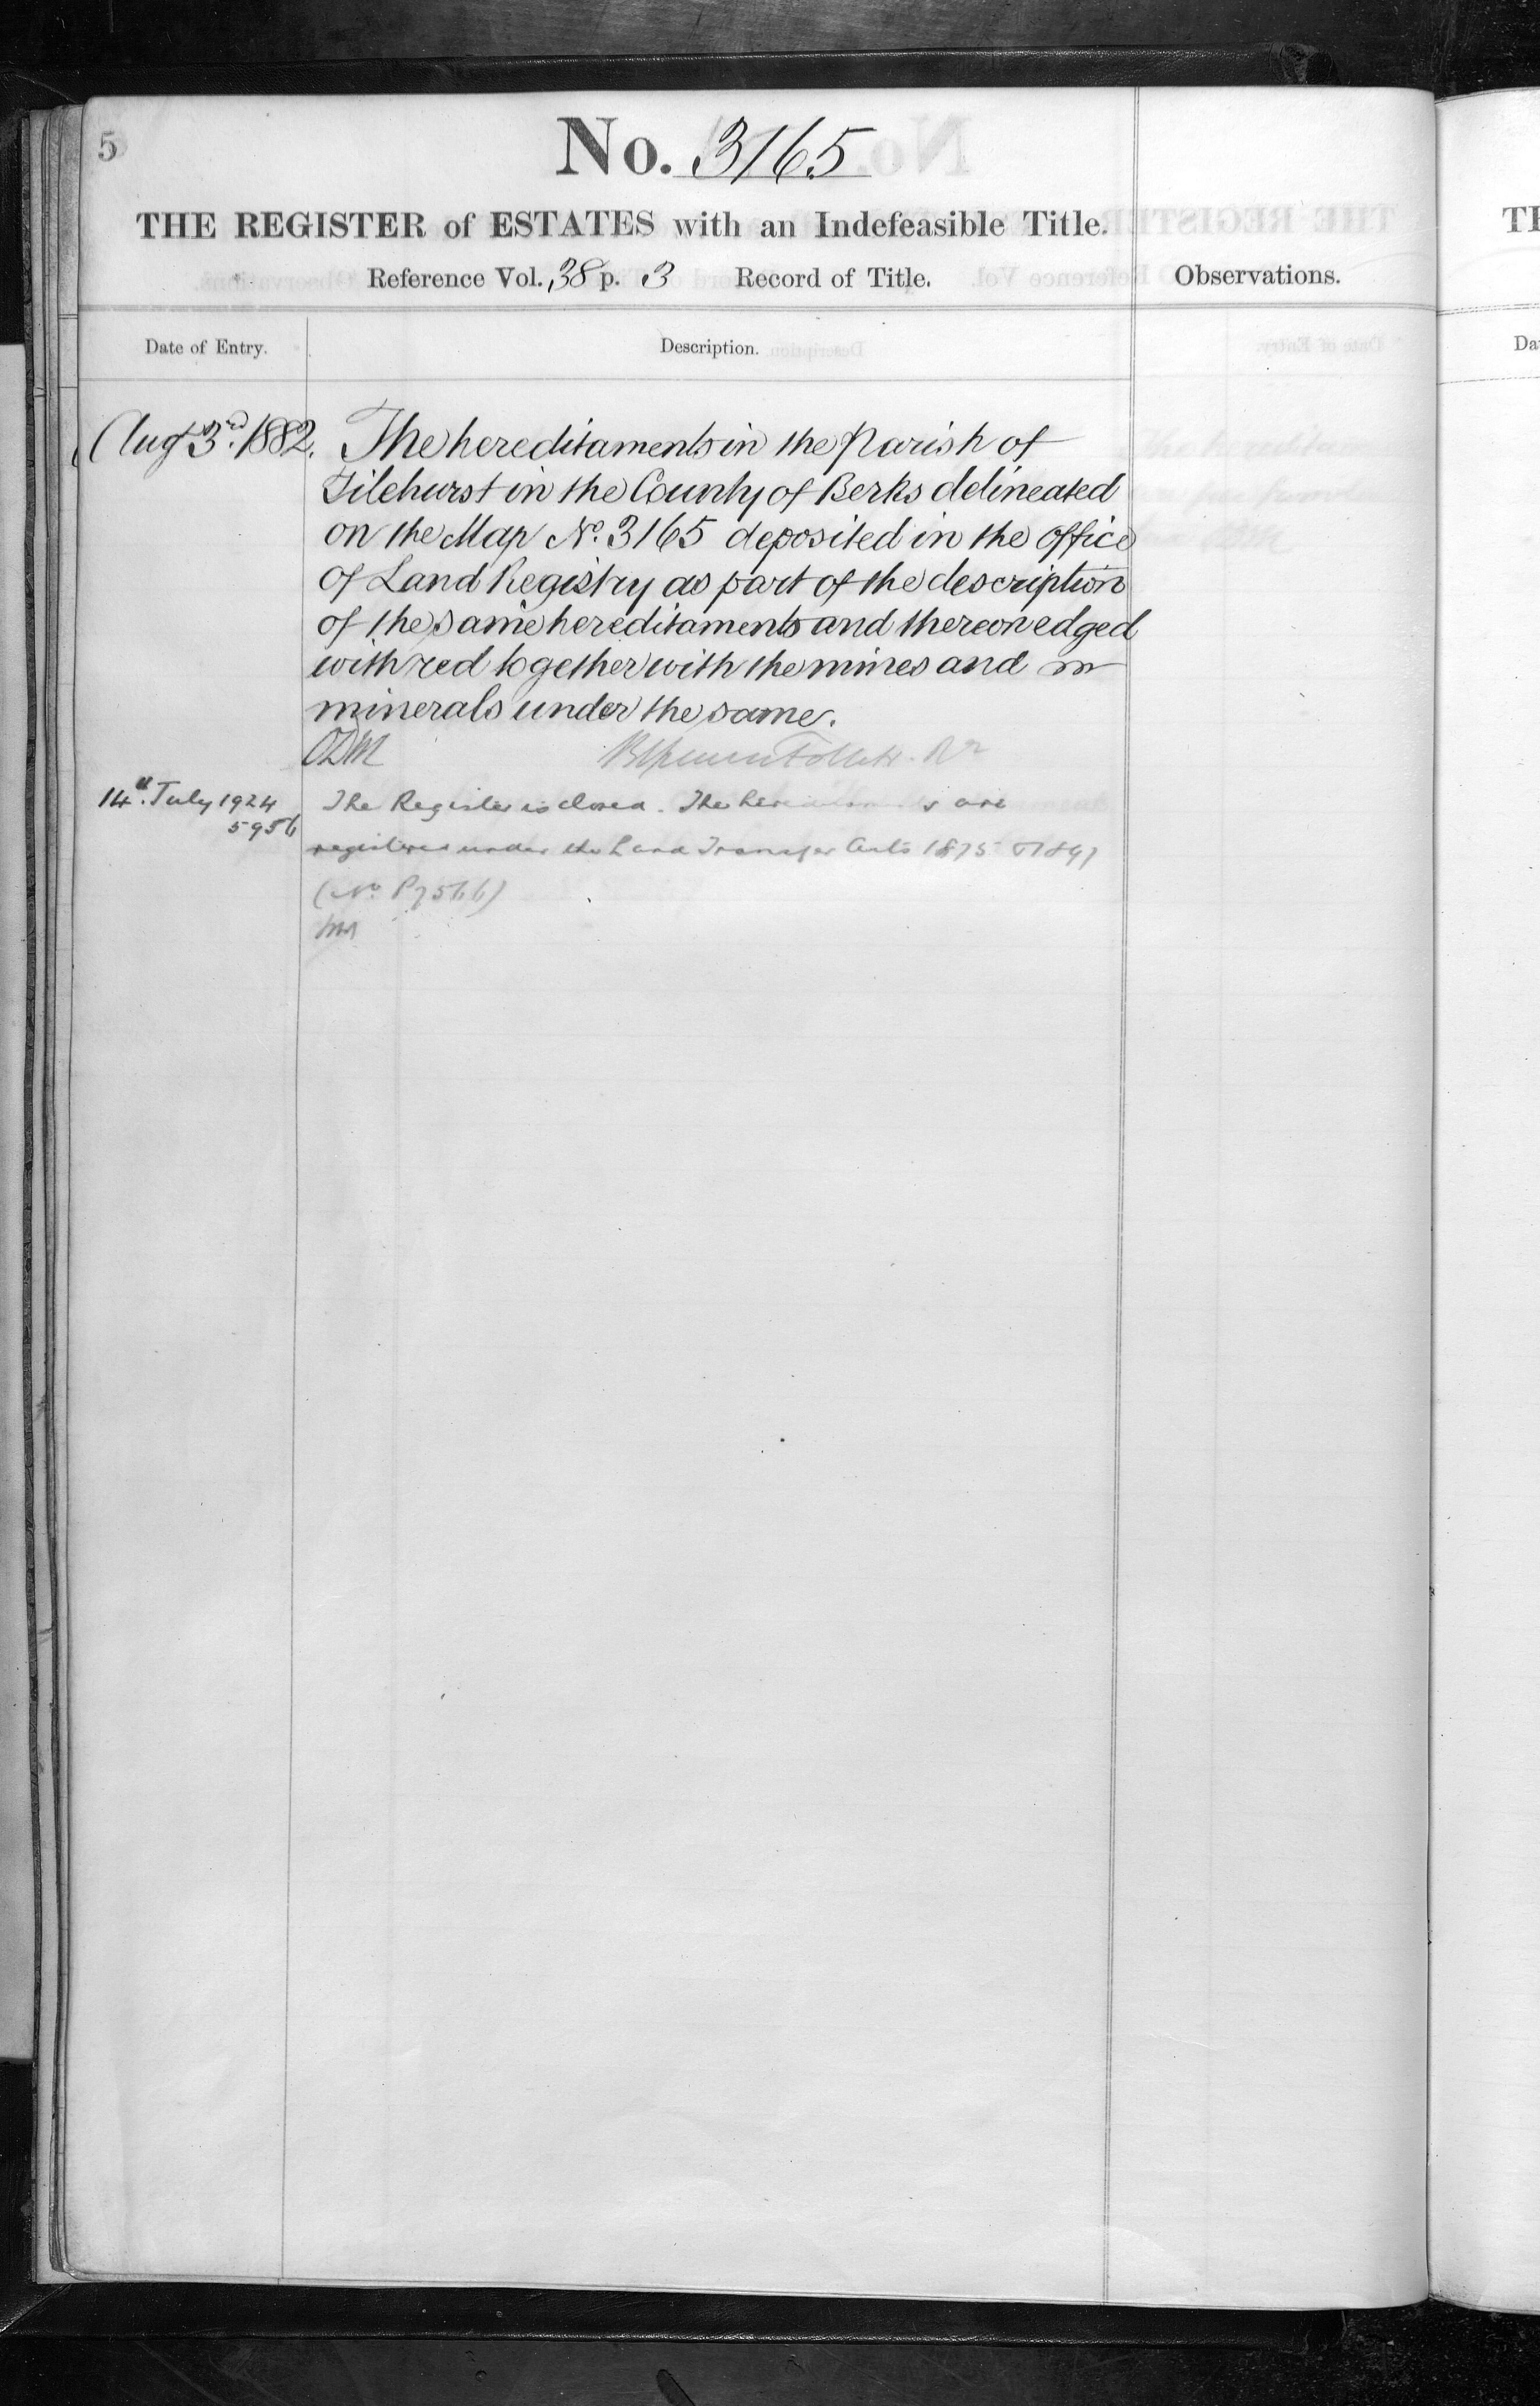 5
No. 3165
THE REGISTER of ESTATES with an Indefeasible Title.
Reference Vol. 38 p. 3 Record of Title.
Observations.
Date of Entry.
Description.
Augt 3rd. 1882. The hereditaments in the Parish of
Tilehurst in the County of Berks delineated
on the Map No. 3165 deposited in the office
of Land Registry as part of the description
of the same hereditaments and thereon edged
with red together with the mines and
minerals under the same.
14th July 1924 The Register is closed. The hereditaments are
5956
registered under the Land Transfer Acts 1875 & 1897
(No P7566)